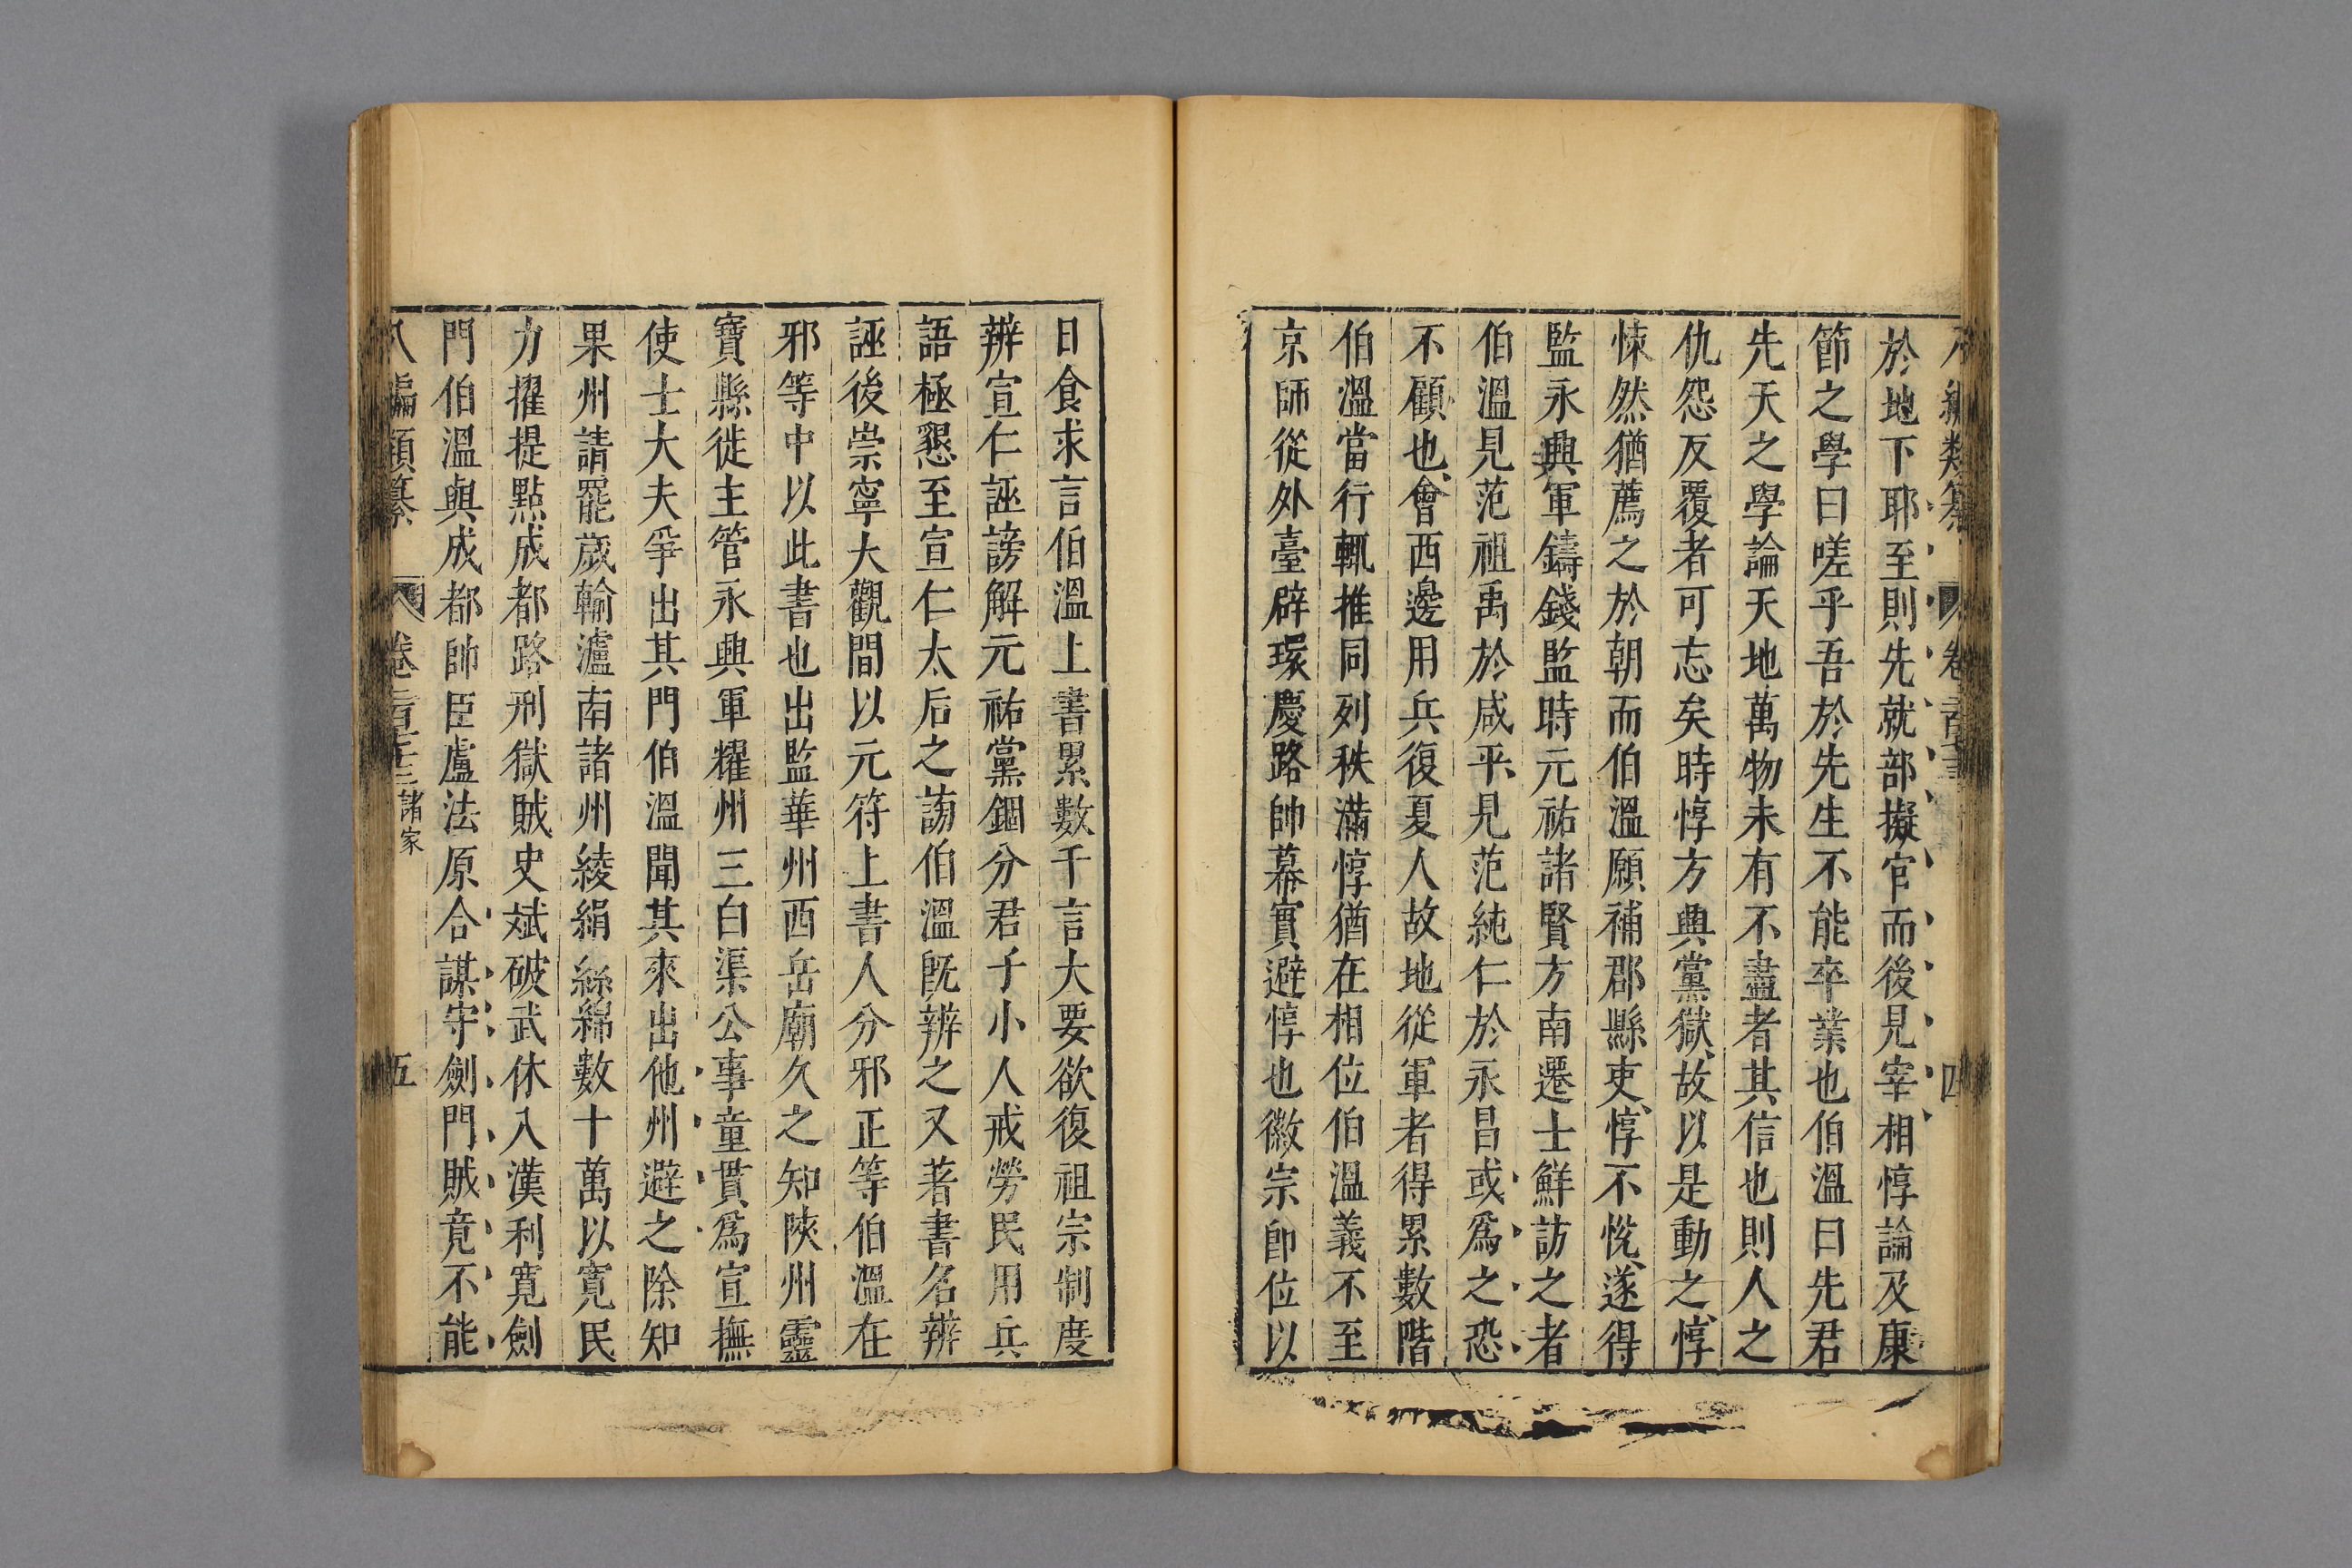 於地下耶至則先就部擬官而後見宰相惇論及康
節之學曰嗟乎吾於先生不能卒業也伯溫曰先君
先天之學論天地萬物未有不盡者其信也則人之
仇怨反覆者可忘矣時惇方興黨獄故以是動之惇
悚然猶薦之於朝而伯溫願補郡縣吏惇不悅遂得
監永興軍鑄錢監時元祐諸賢方南遷士鮮訪之者
伯溫見范祖禹於咸平見范純仁於永昌或爲之恐
不顧也會西邊用兵復夏人故地從軍者得累數階
伯溫當行輒推同列秩滿惇猶在相位伯溫義不至
京師從外臺辟環慶路帥幕實避惇也徽宗卽位以
日食求言伯溫上書累數千言大要欲復祖宗制度
辨宣仁誣謗解元祐黨錮分君子小人戒勞民用兵
語極懇至宣仁太后之謗伯溫旣辨之又著書名辨
誣後崇寧大觀間以元符上書人分邪正等伯溫在
邪等中以此書也出監華州西岳廟久之知陝州靈
寶縣徙主管永興軍耀州三白渠公事童貫爲宣撫
使士大夫爭出其門伯溫聞其來出他州避之除知
果州請罷歲輸瀘南諸州綾絹絲綿數十萬以寬民
力擢提點成都路刑獄賊史斌破武休入漢利寬劍
門伯溫與成都帥臣盧法原合謀守劍門賊竟不能
八編類纂 卷 諸家 五